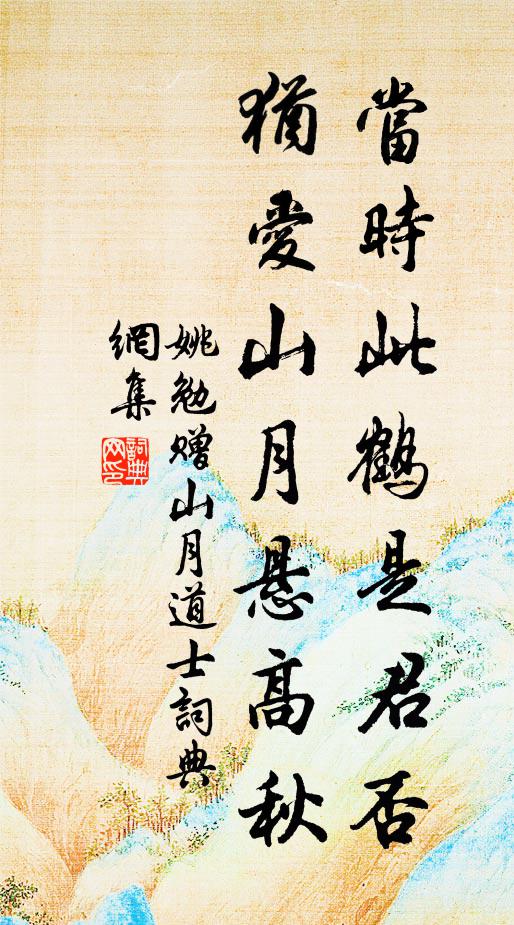 當時此鶴是君否
猶愛山月懸高秋
姚勉贈山月道士詞典
網集
詞典
網印